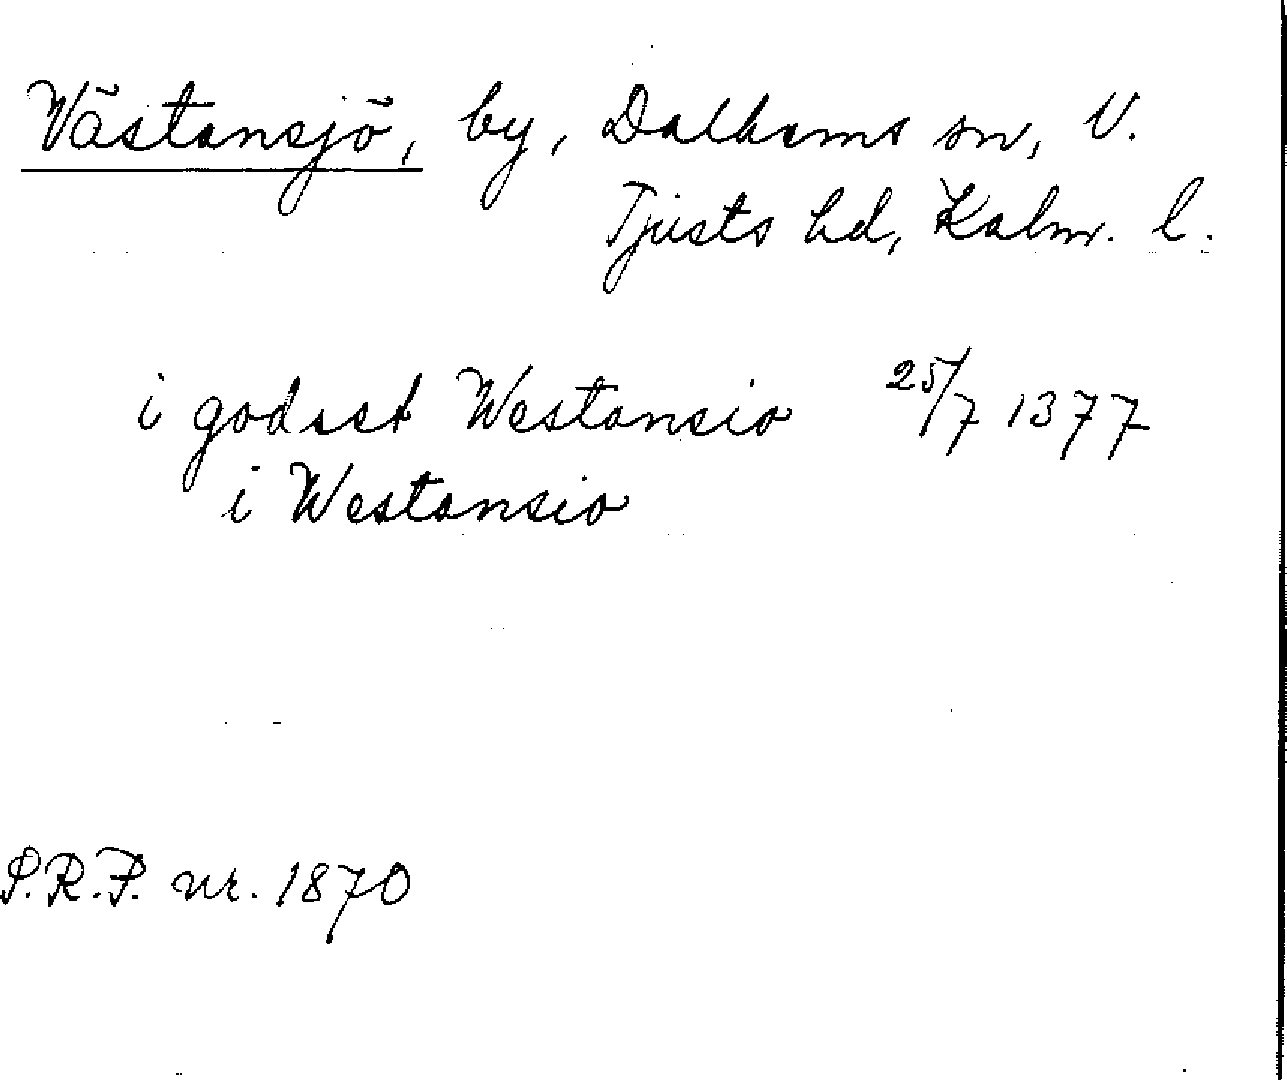 Västansjö, by, Dalhems sn, N.
Tjusts hd, Kalm. l.
i godset Westansio 25/7 1377
i Westansio
S.R.P. nr. 1870